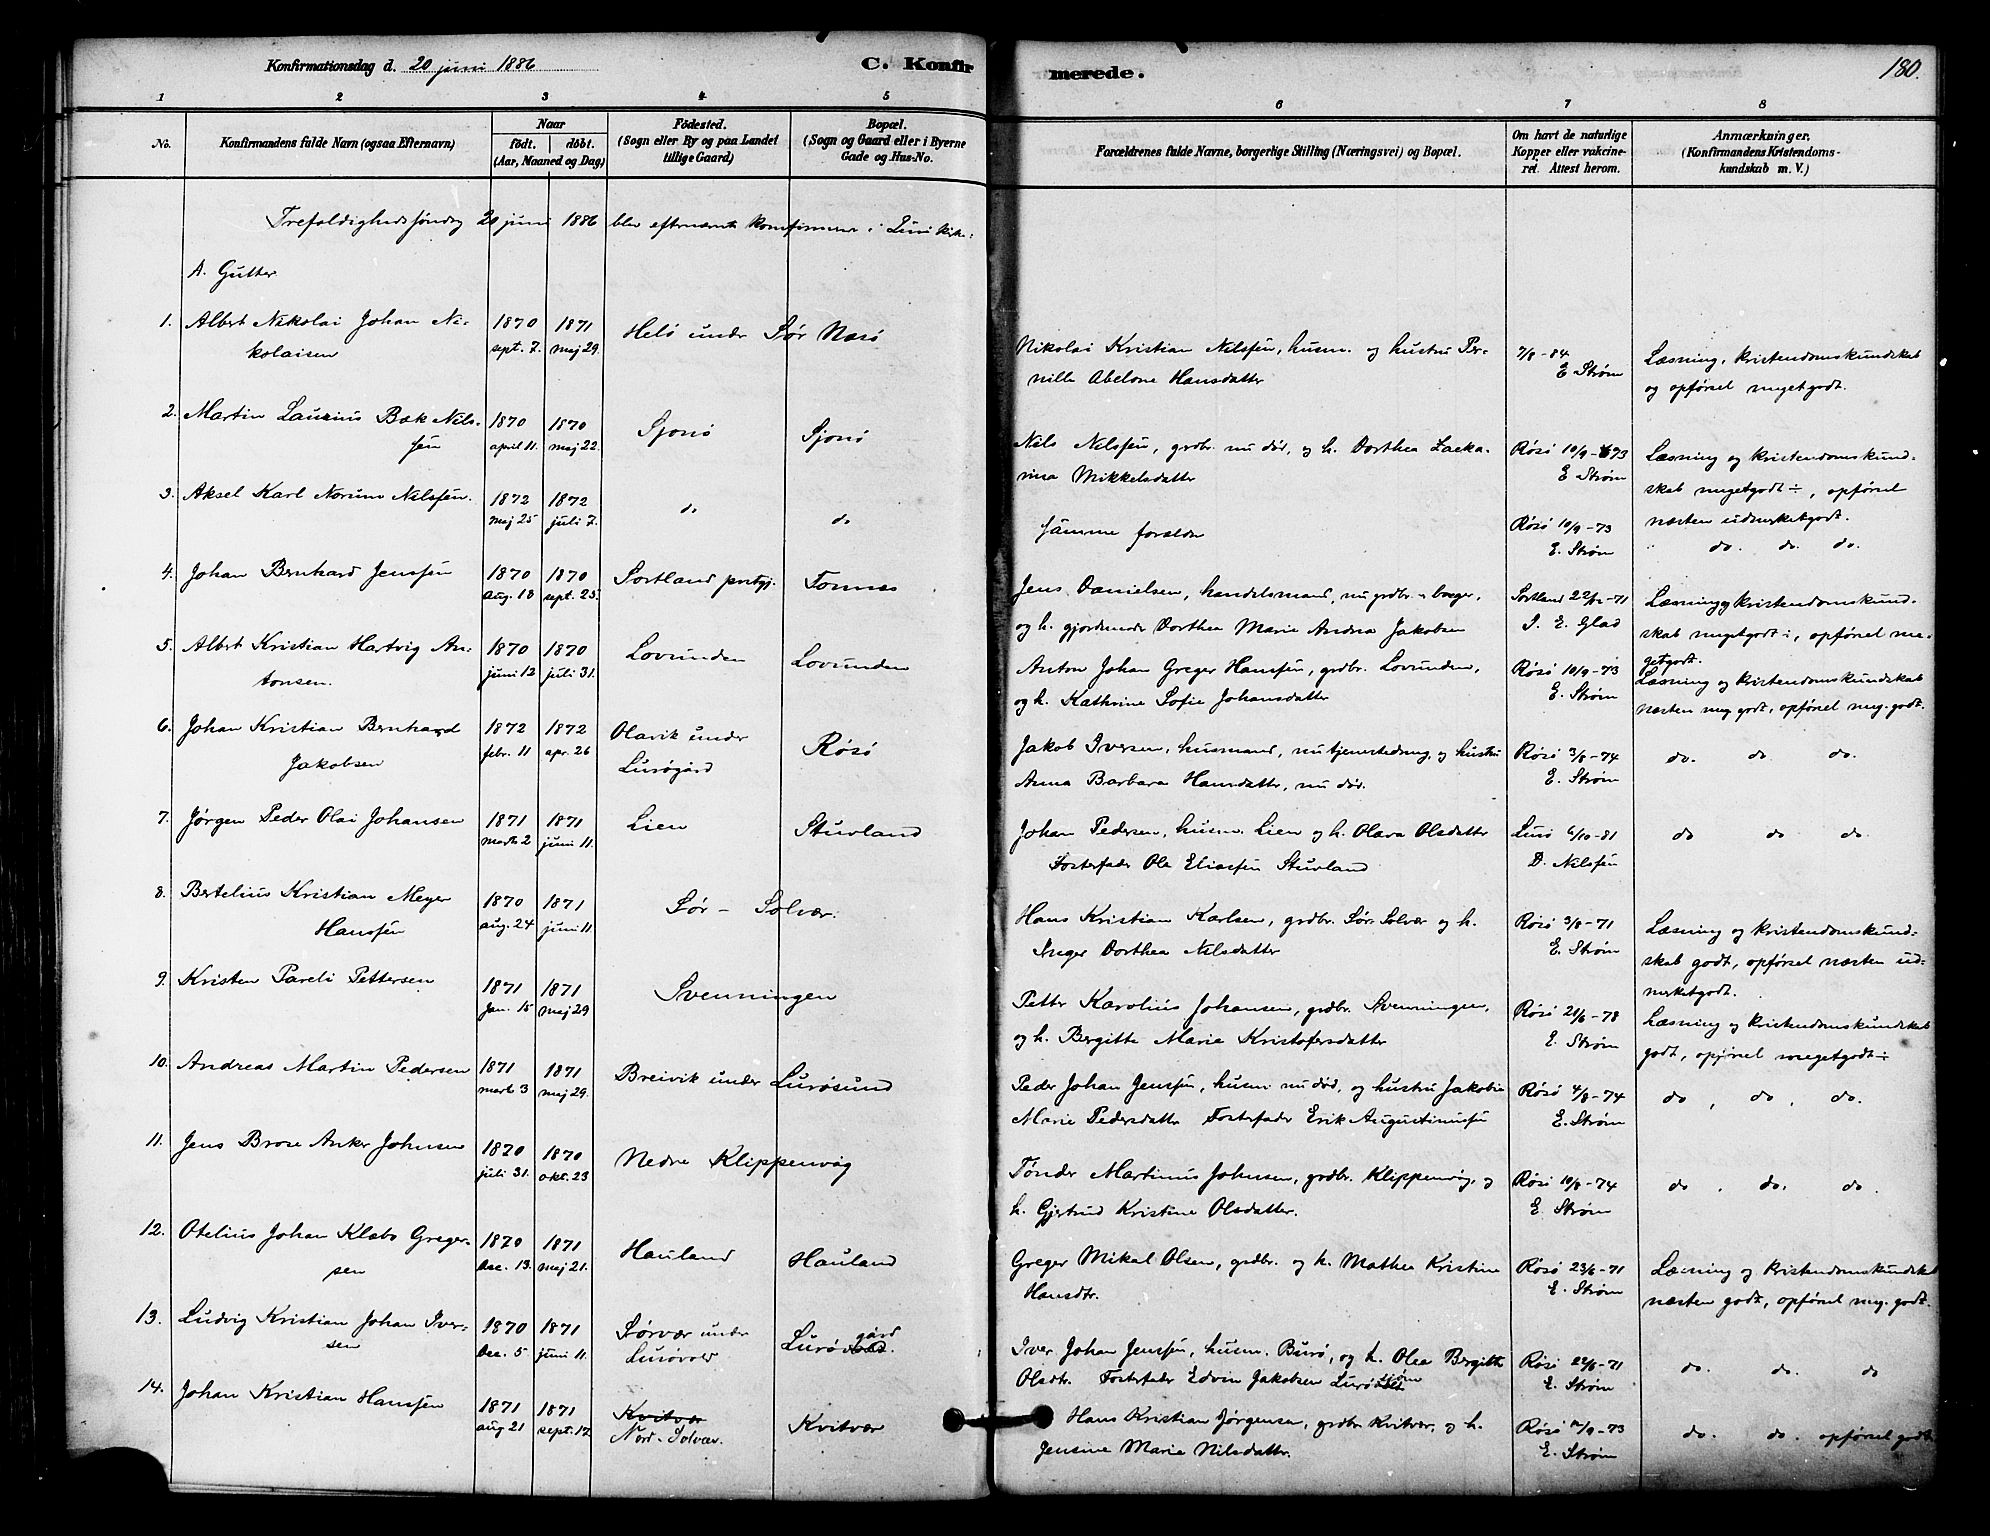 Konfirmationsdag d. 20 juni 1886
C. Konfirmerede.
180.
1 2 3 4 5 6 7 8
No.
Konfirmandens fulde Navn (ogsaa Efternavn)
Naar
født. døbt.
(Aar, Maaned og Dag)
Fødested.
(Sogn eller By og paa Landet
tillige Gaard)
Bopæl.
(Sogn og Gaard eller i Byerne
Gade og Hus-No.
Forældrenes fulde Navne, borgerlige Stilling (Næringsvei) og Bopæl.
Om havt de naturlige
Kopper eller vakcine-
ret. Attest herom.
Anmærkninger.
(Konfirmandens Kristendoms-
kundskab m. V.)
Trefoldighedssøndag 20 juni 1886 blev efternævnte konfirmeret i Lurø kirke.
A. Gutter
1. Albert Nikolai Johan Ni-
kolaisen
1870 sept. 7. 1871 maj 29.
Helø under Sør Nesø
Nikolai Kristian Nilssen, husm. og hustru Per-
nille Abelone Hansdatter
7/8-84
E Strøm
Læsning, kristendomskundskab
og opførsel megetgodt.
2. Martin Laurius Bæk Nils-
sen
1870 april 11. 1870 maj 22.
Sjonø
Sjonø
Nils Nilssen, grdbr. nu død, og h. Dorthea Laka-
rina Mikkelsdatter
Røsø 10/9-73
E Strøm
Læsning og kristendomskund-
skab megetgodt÷, opførsel
næsten udmerketgodt.
3. Aksel Karl Norum Nilssen.
1872 maj 25 1872 juli 7.
do
do
samme forældre
Røsø 10/9-73
E. Strøm
" do. do. do.
4. Johan Bernhard Jenssen
1870 aug. 18 1870 sept. 25.
Sortland prstgj.
Tonnes
Jens Danielsen, handelsmand, nu grdbr. s borger,
og h. gjordmoder Dorthea Marie Andrea Jakobsen
Sortland 22/12-71
I. E. Glad
Læsning og kristendomskund-
skab megetgodt÷, opførsel me-
getgodt.
5. Albert Kristian Hartvig An-
tonsen.
1870 juni 12 1870 juli 31.
Lovunden
Lovunden
Anton Johan Greger Hanssen, grdbr. Lovunden,
og h. Kathrine Sofie Johansdatter
Røsø 10/9-73
E. Strøm
Læsning og kristendomskundskab
næsten meg. godt, opførsel meg. godt.
6. Johan Kristian Bernhard
Jakobsen
1872 febr. 11 1872 apr. 26
Olavik under
Lurøgård
Røsø
Jakob Iversen, husmand, nu tjenestedreng, og hustru
Anna Barbara Hansdatter, nu død.
Røsø 3/8-74
E. Strøm
do. do do.
7. Jørgen Peder Olai Johansen
1871 marts 2 1871 juni 11.
Lien
Stuvland
Johan Pedersen, husm. Lien og h. Olava Olsdatter
Fosterfader Ole Eliassen Stuvland
Lurø 6/10-81
D. Nilssen
do do do
8. Bertelius Kristian Meyer
Hanssen
1870 aug. 24 1871 juni 11
Sør - Solvær.
Hans Kristian Karlsen, grdbr. Sør-Solvær og h.
Inger Dorthea Nilsdatter
Røsø 3/8-71
E. Strøm
Læsning og kristendomskund-
skab godt, opførsel næsten ud-
merketgodt.
9. Kristen Pareli Pettersen
1871 jan. 15 1871 maj 29
Svenningen
Petter Karolius Johansen, grdbr. Svenningen,
og h. Bergitte Marie Kristofersdatter
Røsø 21/6-78
E. Strøm
Læsning og kristendomskundskab
godt, opførsel megetgodt÷
10. Andreas Martin Pedersen
1871 marts 3 1871 maj 29.
Breivik under Lurøsund
Peder Johan Jenssen, husm. nu død, og hustru Jakobin
Marie Pedersdatter Fosterfader Erik Augustinussen
Røsø 4/8-74
E. Strøm
do, do, do.
11. Jens Brose Anker Johnsen
1870 juli 31. 1870 okt. 23
Nedre Klippenvåg
Tønder Martinus Johnsen, grdbr. Klippenvåg, og
h. Gjertrud Kristine Olsdatter.
Røsø 10/8-74
E. Strøm
do, do. do.
12. Otelius Johan Klæbo Greger-
sen
1870 Dec. 13. 1871 maj 21.
Hauland
Hauland
Greger Mikal Olsen, grdbr. og h. Mathea Kristine
Hansdtr.
Røsø 23/6-71
E. Strøm
Læsning og kristendomskundskab
næsten godt, opførsel meg. godt.
13. Ludvig Kristian Johan Iver-
sen
1870 Dec. 5 1871 juni 11.
Sørvær under
Lurøvold
Lurøgård
Iver Johan Jenssen, husm. Burø, og h. Olea Bergitte
Olsdtr. Fosterfader Edvin Jakobsen Lurø
Røsø 22/6-71
E. Strøm
do. do. do
14. Johan Kristian Hanssen
1871 aug 21 1871 sept. 17
Kvitvær
Nord-Solvær.
Kvitvær
Hans Kristian Jørgensen, grdbr. Kvitvær, og h.
Jensine Marie Nilsdatter.
Røsø 11/9-73
E. Strøm
do. do. opførsel godt.